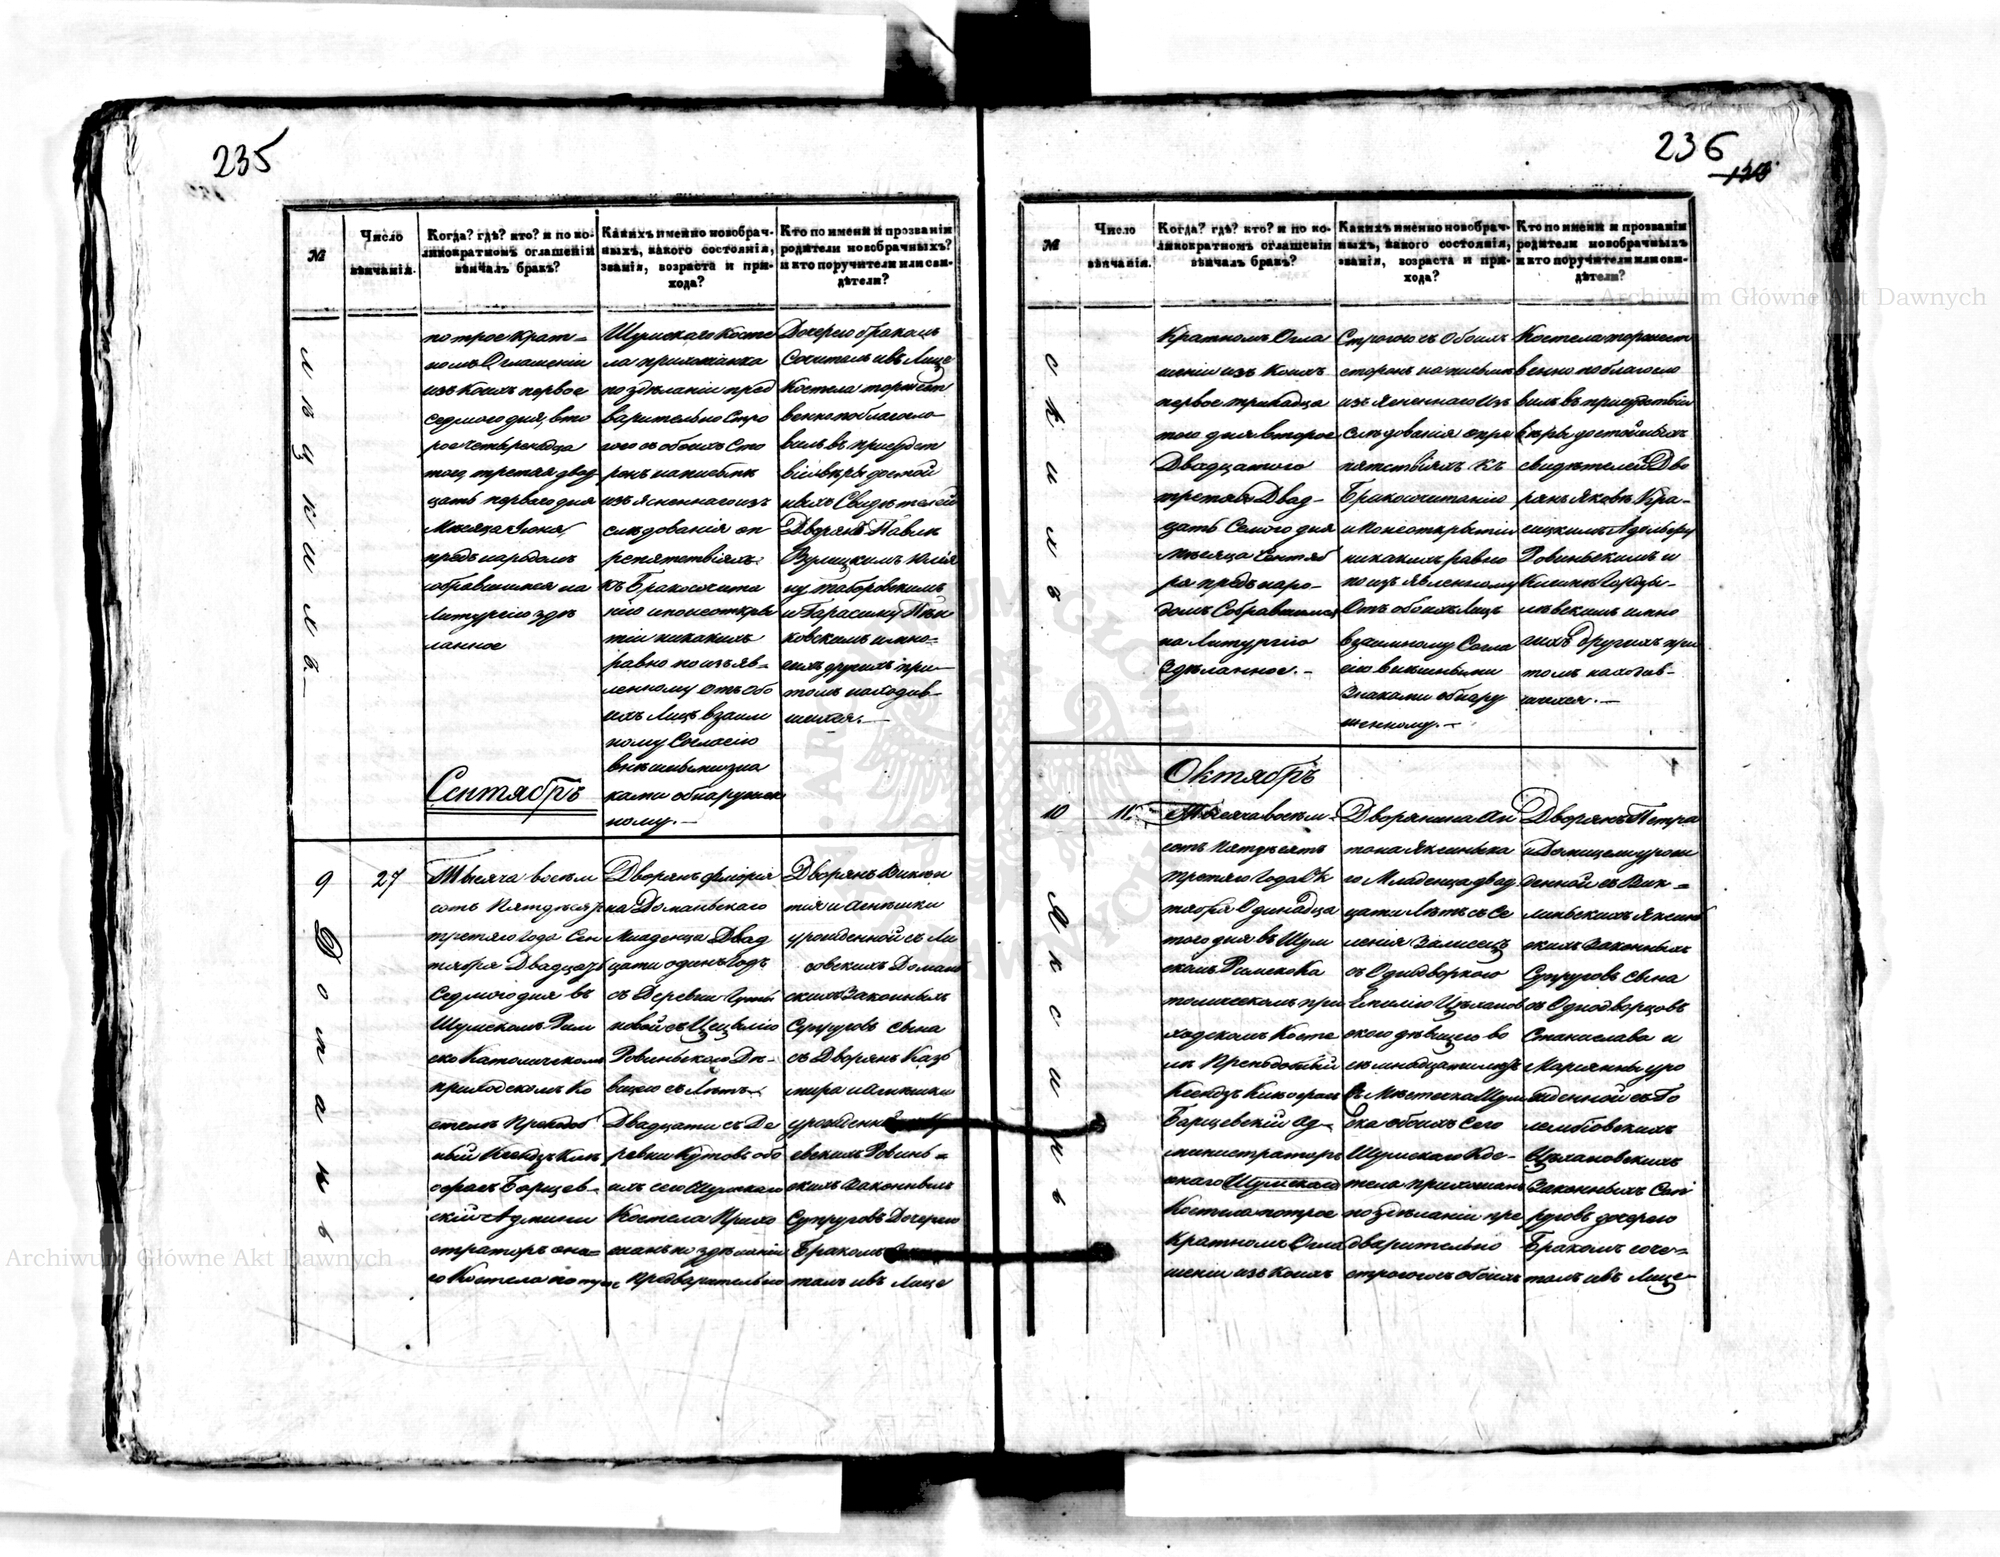 235
№
Число
вѣнчанія.
Когда? гдѣ? кто? и по ко-
ликократномъ оглашеніи
вѣнчалъ бракъ?
Какихъ именно новобрач-
ныхъ, какого состоянія,
званія, возраста и при-
хода?
Кто по имени и прозванію
родители новобрачныхъ?
и кто поручители или сви-
дѣтели?
по трое крат-
номъ Оглашеніи
изъ коихъ первое
седмого дня, вто
рое четырнадца
того, третяя двад
цать перваго дня
Мѣсяца Іюня,
предъ народомъ
собравшимся на
Литургію здѣ
ланное
Сентябръ
Шумскаго Косте
ла прихожанка
по здѣланіи пред
варительно Стро
гого съ обоихъ Сто
ронъ на письмѣ
изъясненнаго изъ
слѣдованія оп
репятствіяхъ
къ Бракосочита
нію и понеоткры
тіи никакихъ
равно по изъяв-
ленному отъ обо
ихъ Лицъ взаим
ному Согласію
внѣшнымизна
ками обнаружен
ному.-
Дочерею бракомъ
Сочиталъ и въ Лице
Костела торжест
венно поблагосло
вилъ въ присудст
віи вѣры достой
ныхъ Свидѣтелей
Дворянъ Павлѣ
и Герасиму
ковскимъ и мно-
гихъ другихъ при
томъ находив-
шихся.-
9
27
Доманьв
Тысяча восѣм
сотъ Пятдѣсятъ
третяго Года Сен
тября Двадцать
Седмого дня въ
Шумскомъ Рим
ско Католическомъ
приходскомъ Ко
стелѣ Преподоб
ный Ксендзъ Ки
Борщев-
скій Админи
страторъ она-
го Костела по трое
Дворянъ Флорія
на Доманьскаго
Младенца Двад
цати одинъ Годъ
съ Деревни
новой съ Цецылію
Ровиньского Дѣ-
вицею съ Лѣтъ
Двадцати съ Де
ревни Кутовъ обо
ихъ сего Шумскаго
Костела Прихо
жанъ по здѣланіи
Предварительно
Дворянъ Викен
тія и Агнѣшки
урожденной съ Ли
совскихъ Доман
скихъ Законныхъ
Супруговъ сына
съ Дворянъ Кази
мира и Агнѣшки
евскихъ Ровинь-
скихъ Законныхъ
Супруговъ Дочерею
Бракомъ
талъ и въ Лице
236
№
Число
вѣнчанія.
Когда? гдѣ? кто? и по ко-
ликократномъ оглашеніи
вѣнчалъ бракъ?
Какихъ именно новобрач-
ныхъ, какого состоянія,
званія, возраста и при-
хода?
Кто по имени и прозванію
родители новобрачныхъ
и кто поручители или сви-
дѣтели?
скихъ
Кратномъ Огла
шеніи изъ Коихъ
первое трінадца
того дня второе
Двадцатого
третяе Двад-
цать Семого дня
Мѣсяца Сентяб
ря предъ наро-
домъ Собравшимся
на Литургію
Здѣланное.-
Строгого съ Обоихъ
сторонъ на письмѣ
изъясненнаго Из
слѣдованія опре
пятствіяхъ къ
Бракосочитанію
и понеоткрытіи
никакихъ равно
по изъявленному
Отъ обоихъ Лицъ
взаимному Согла
сію внѣшными
Знаками обнару
женному.-
Костела торжест
венно поблагосло
вилъ въ присудствіи
вѣры достойныхъ
свидѣтелей Дво
рянъ Яковъ
Ровиньскимъ и
и мно
гихъ другихъ при
томъ находив-
шихся.-
Октябръ
10
11.
Яксинъ
Тысяча восѣм-
сотъ Пятдѣсятъ
третяго Года Ок
тября Одинадца
того дня въ Шум
скомъ Римско Ка
толическомъ при
ходскомъ Косте
лѣ Преподобный
Борщевскій Ад-
министраторъ
онаго Шумскаго
Костела по трое
Кратномъ Огла
шеніи изъ Коихъ
Дворянина Ан
тона Яксинска
го Младенца двад
цати Лѣтъ съ Се
ленія Залисецъ
съ Однодворкою
Емилію Цѣханов
скою дѣвицею во
съмнадцати лѣтъ
съ Мѣстечка Шум
ска обоихъ Сего
Шумскаго Кос-
тела прихожанъ
по здѣланіи пре
дварительно
строгого съ обоихъ
Дворянъ Петра
и Домицели урож
денной съ
Яксин
скихъ Законныхъ
Супруговъ сына
съ Однодворцовъ
Станислава и
Маріянны уро
жденной съ Го
лембіовскихъ
Цѣхановскихъ
Законныхъ Суп
руговъ дочерею
Бракомъ соче-
талъ и въ Лице
Archiwum Główne Akt Dawnych
Archiwum Główne Akt Dawnych